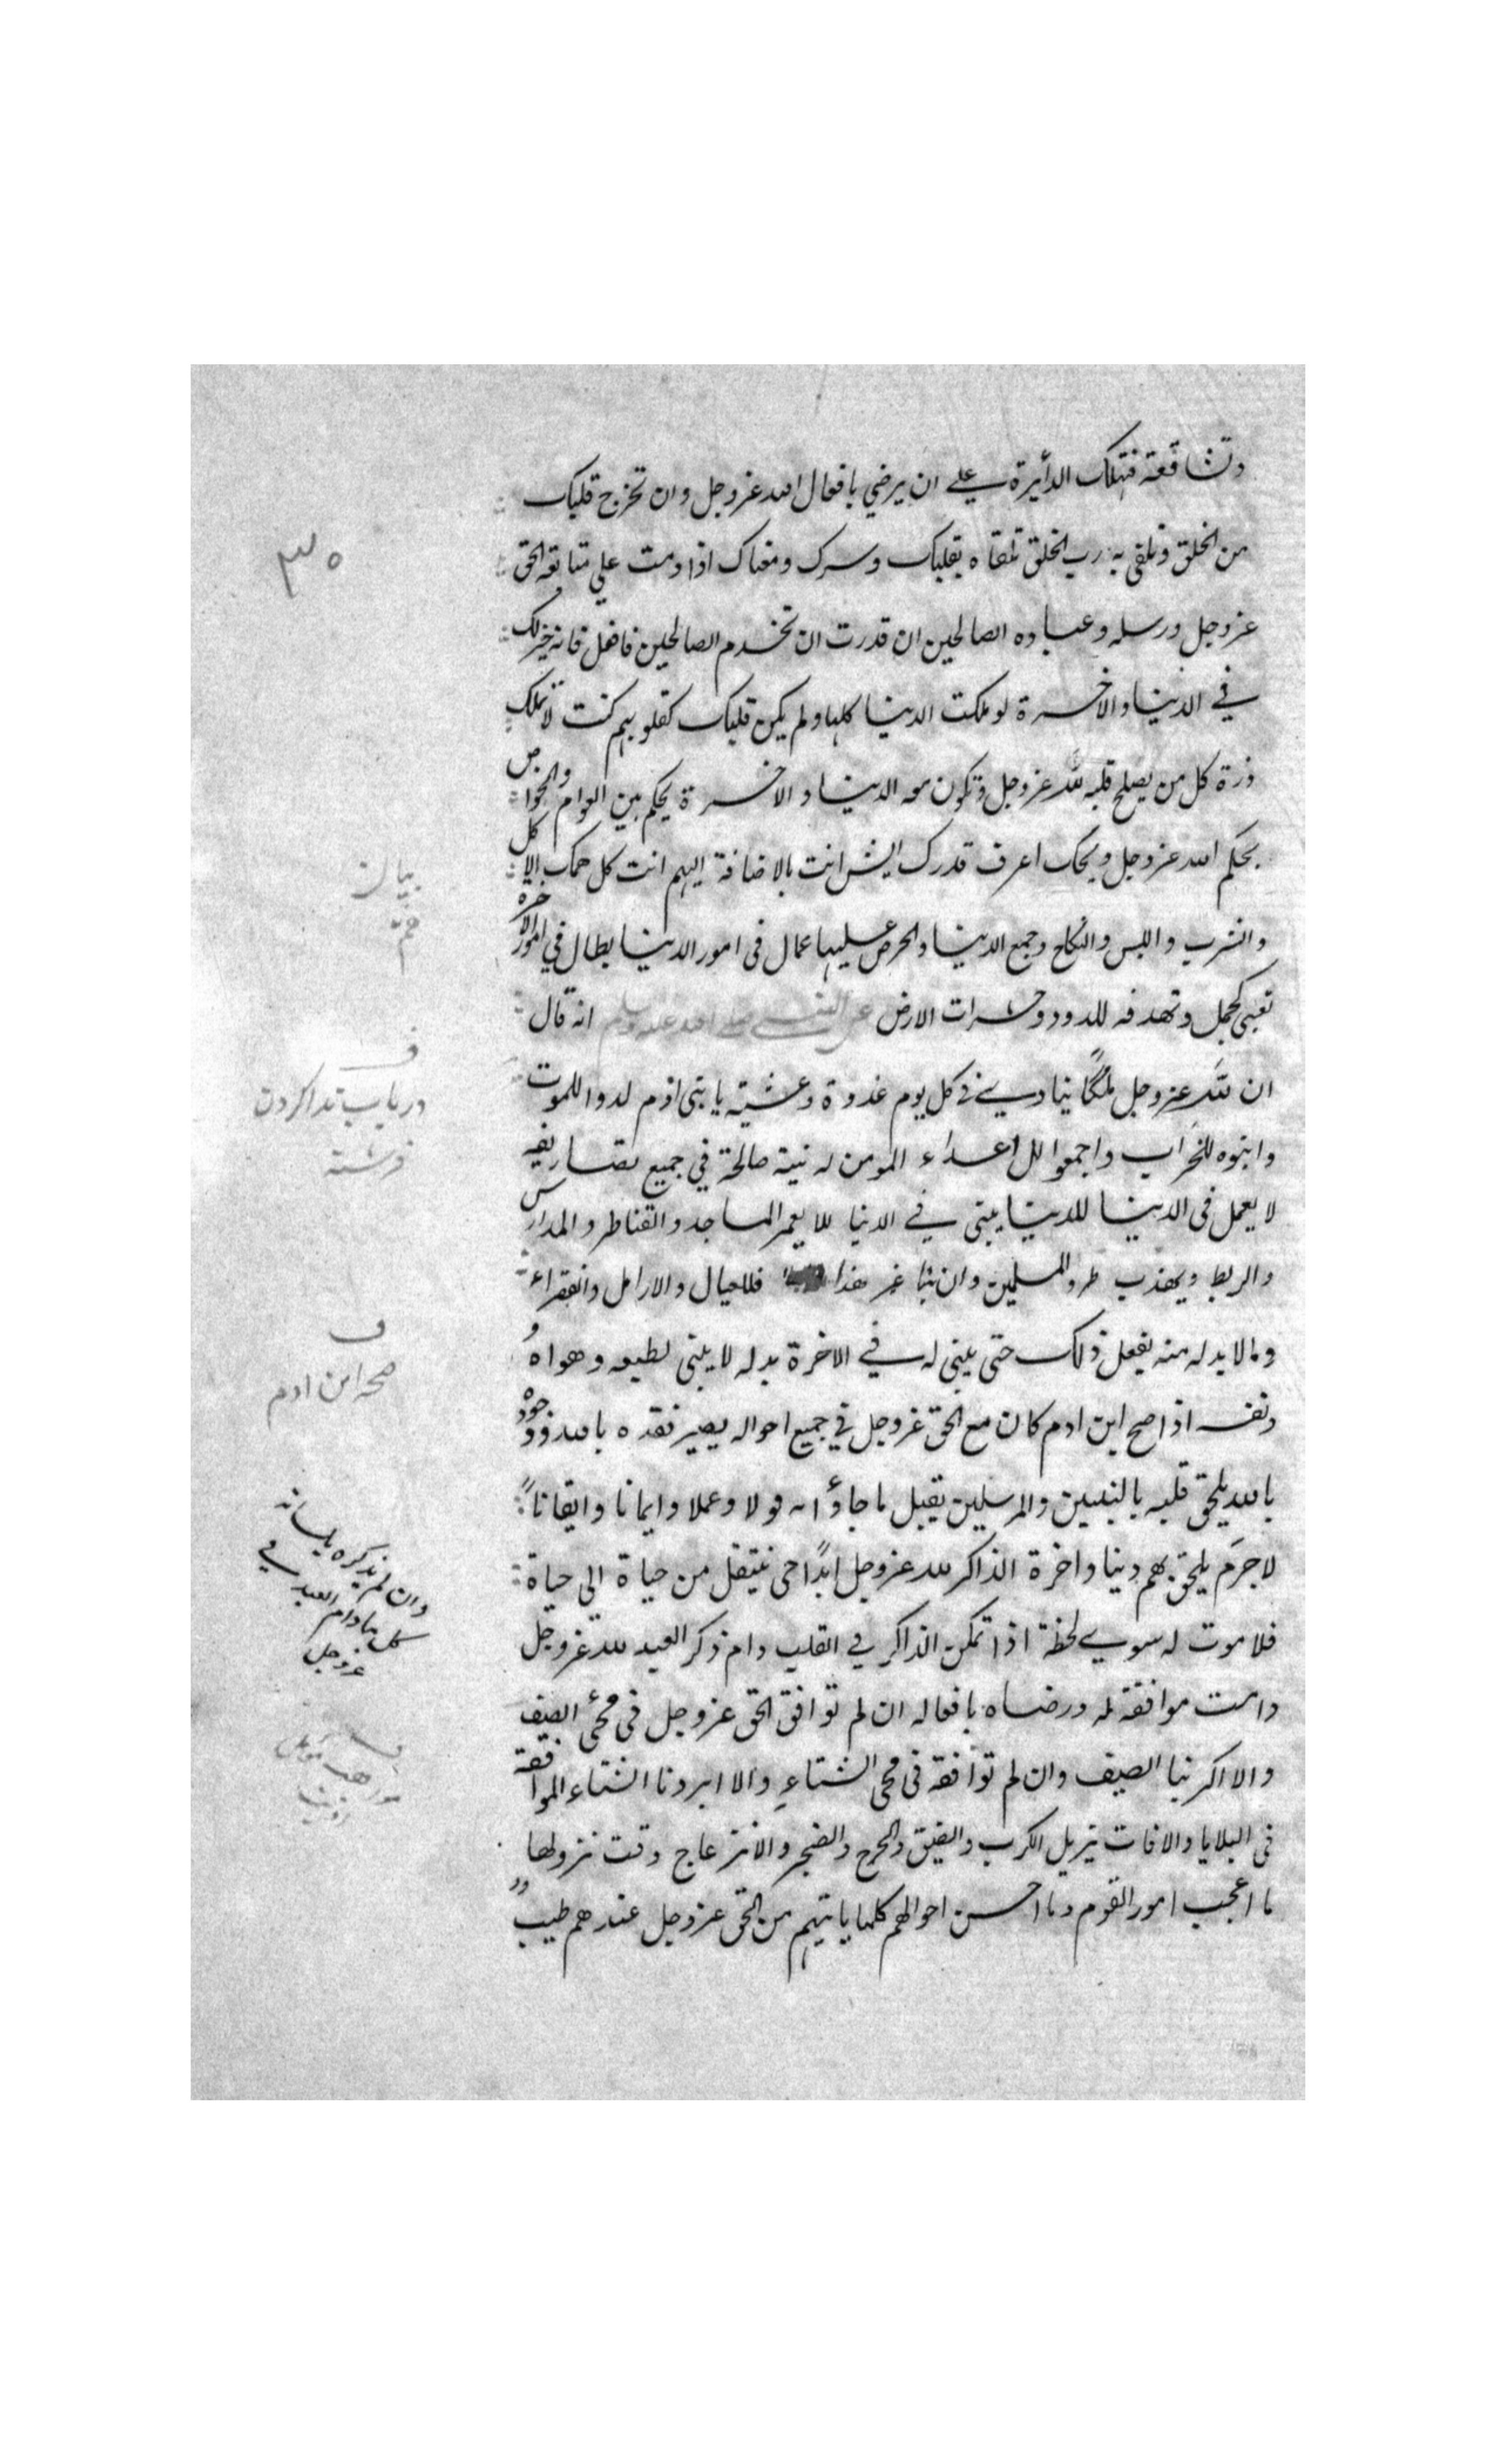 وتشاققه فتهلك الدأيرة على ان يرضي بافعال الله عز وجل وان تخرج قلبك
من الخلق وتلقى به رب الخلق تلقاه بقلبك وسرك ومعناك اذا دمت علي متابعة الحق
عز وجل ورسله وعباده الصالحين ان قدرت ان تخدم الصالحين فافعل فانه خير لك
في الدنيا والاخرة لو ملكت الدنيا كلها ولم يكن قلبك كقلوبهم كنت لا تملك
ذرة كل من يصلح قلبه لله عز وجل وتكون معه الدنيا والاخرة يحكم بين العوام والخواص
بحكم الله عز وجل ويحك اعرف قدرك ايش انت بالاضافة اليهم انت كل همك الاكل
والشرب واللبس والنكاح وجمع الدنيا والحرص عليها عمال فى امور الدنيا بطال في امور الاخرة
تعبى لحمك وتهدفه للدود وحشرات الارض عن النبي صلى الله عليه وسلم انه قال
ان لله عز وجل ملكًا ينادي في كل يوم غدوة وعشية يا بنى ادم لدوا للموت
وابنوه للخراب واجمعوا للاعداء المومن له نية صالحة في جميع تصاريفه
لا يعمل فى الدنيا للدنيا يبنى في الدنيا للا يعمر المساجد والقناطر والمدارس
والربط ويهذب طرو المسلمين وان بنا غير هذا فللعيال والارامل والفقراء
وما لا بد له منه يفعل ذلك حتى يبنى له في الاخرة بدله لا يبنى لطبعه وهواهُ
ونفسه اذا صح ابن ادم كان مع الحق عز وجل في جميع احواله يصير فقده بالله ووجوده
بالله يلحق قلبه بالنبيين والمرسلين يقبل ما جاؤا به قولا وعملا وايمانا وايقاناً
لا جرَم يلحق بهم دينا واخرة الذاكر لله عز وجل ابدًا حى ينتقل من حياة الى حياة
فلا موت له سوي لحظة اذا تمكن الذاكر في القلب دام ذكر العبد لله عز وجل
دامت موافقة له ورضاه بافعاله ان لم توافق الحق عز وجل فى مجئ الصيف
والا اكربنا الصيف وان لم توافقه فى مجى الشتاءِ والا ابردنا الشتاء الموافقة
فى البلايا والافات يزيل الكرب والضيق والحرج والضجر والانزعاج وقت نزولها
ما اعجب امور القوم وما احسن احوالهم كلما ياتيهم من الحق عز وجل عندهم طيب
٣٥
بيان
ف
در باب ندا كردن
فرشته
ف
صح ابن ادم
وان لم يذكره بلسانه
كل ما دام العبد في
عز وجل